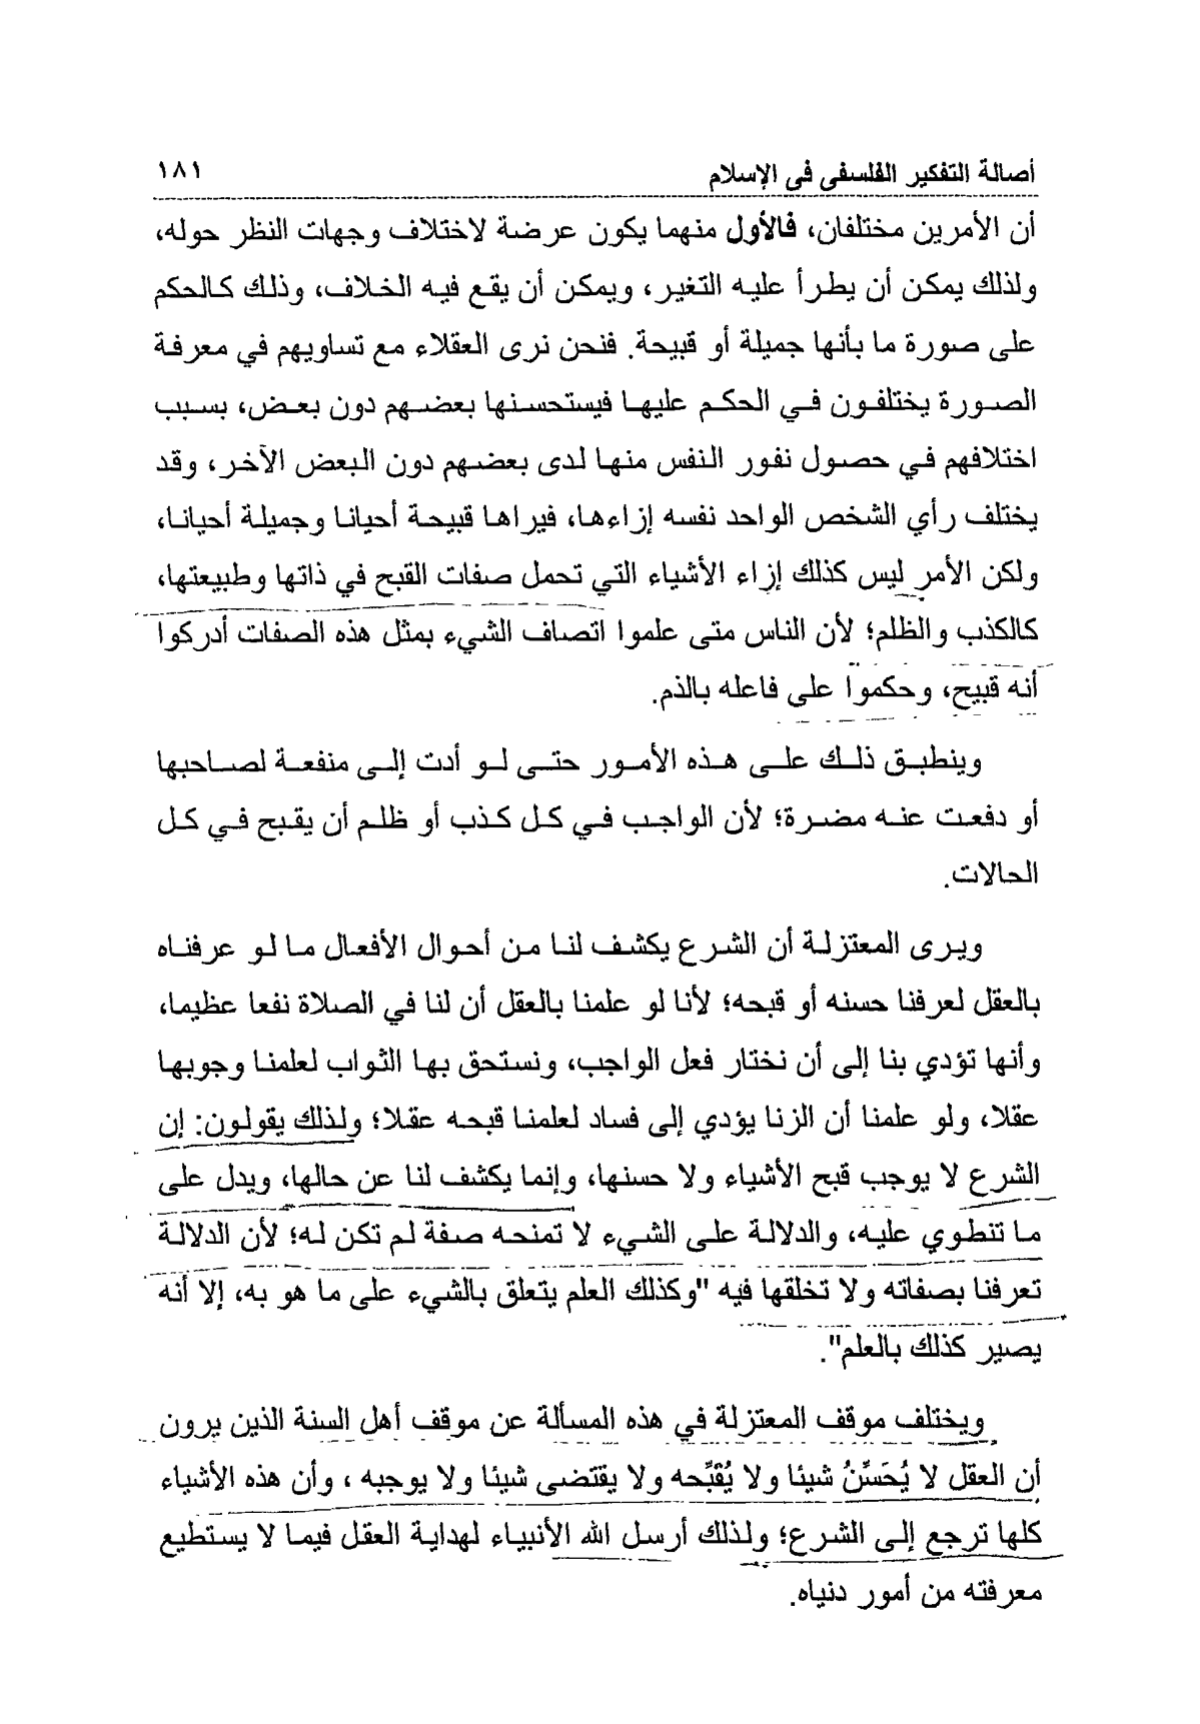 أصالة التفكير الفلسفى فى الإسلام ١٨١
أن الأمرين مختلفان، فالأول منهما يكون عرضة لاختلاف وجهات النظر حوله،
ولذلك يمكن أن يطرأ عليه التغير، ويمكن أن يقع فيه الخلاف، وذلك كالحكم
على صورة ما بأنها جميلة أو قبيحة. فنحن نرى العقلاء مع تساويهم في معرفة
الصورة يختلفون في الحكم عليها فيستحسنها بعضهم دون بعض، بسبب
اختلافهم في حصول نفور النفس منها لدى بعضهم دون البعض الآخر، وقد
يختلف رأي الشخص الواحد نفسه إزاءها، فيراها قبيحة أحيانا وجميلة أحيانا،
ولكن الأمر ليس كذلك إزاء الأشياء التي تحمل صفات القبح في ذاتها وطبيعتها،
كالكذب والظلم؛ لأن الناس متى علموا اتصاف الشيء بمثل هذه الصفات أدركوا
أنه قبيح، وحكموا على فاعله بالذم.
وينطبق ذلك على هذه الأمور حتى لو أدت إلى منفعة لصاحبها
أو دفعت عنه مضرة؛ لأن الواجب في كل كذب أو ظلم أن يقبح في كل
الحالات.
ويرى المعتزلة أن الشرع يكشف لنا من أحوال الأفعال ما لو عرفناه
بالعقل لعرفنا حسنه أو قبحه؛ لأنا لو علمنا بالعقل أن لنا في الصلاة نفعا عظيما،
وأنها تؤدي بنا إلى أن نختار فعل الواجب، ونستحق بها الثواب لعلمنا وجوبها
عقلا، ولو علمنا أن الزنا يؤدي إلى فساد لعلمنا قبحه عقلا؛ ولذلك يقولون: إن
الشرع لا يوجب قبح الأشياء ولا حسنها، وإنما يكشف لنا عن حالها، ويدل على
ما تنطوي عليه، والدلالة على الشيء لا تمنحه صفة لم تكن له؛ لأن الدلالة
تعرفنا بصفاته ولا تخلقها فيه "وكذلك العلم يتعلق بالشيء على ما هو به، إلا أنه
يصير كذلك بالعلم".
ويختلف موقف المعتزلة في هذه المسألة عن موقف أهل السنة الذين يرون
أن العقل لا يُحَسِّنُ شيئا ولا يُقَبِّحه ولا يقتضى شيئا ولا يوجبه ، وأن هذه الأشياء
كلها ترجع إلى الشرع؛ ولذلك أرسل الله الأنبياء لهداية العقل فيما لا يستطيع
معرفته من أمور دنياه.